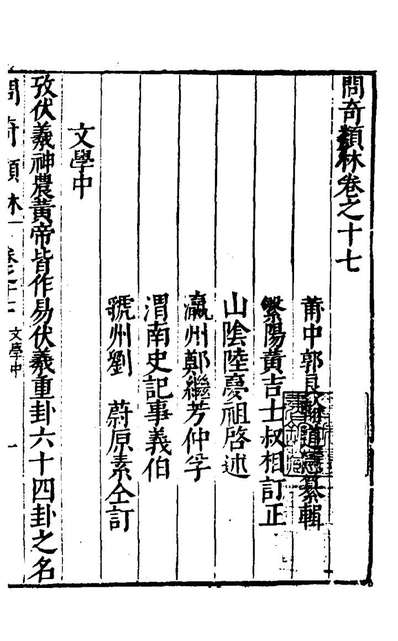 問奇類林卷之十七
莆中郭良翰道憲纂輯
繁陽黃吉士叔相訂正
山陰陸夢祖啓述
瀛州鄭繼芳仲孚
渭南史記事義伯
虢州劉　蔚原素仝訂
文學中
攷伏羲神農黃帝皆作易伏羲重卦六十四卦之名
問奇類林 卷之十七 文學中 一